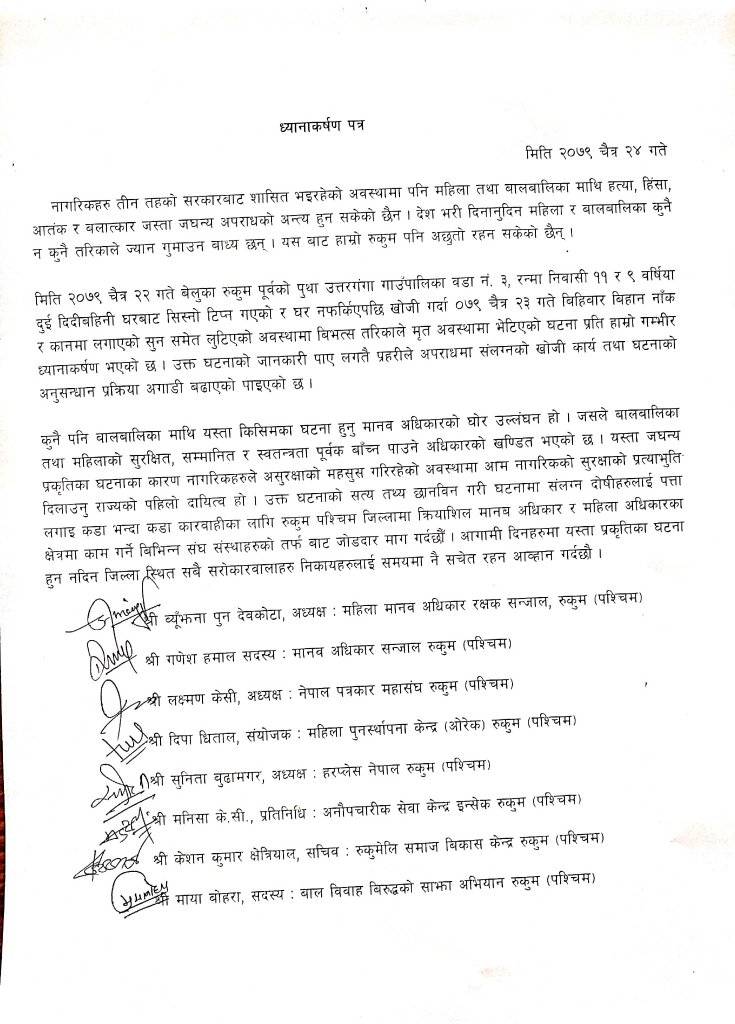 ध्यानाकर्षण पत्र
मिति २०७९ चैत्र २४ गते
नागरिकहरु तीन तहको सरकारबाट शासित भइरहेको अवस्थामा पनि महिला तथा बालबालिका माथि हत्या, हिंसा,
आतंक र बलात्कार जस्ता जघन्य अपराधको अन्त्य हुन सकेको छैन । देश भरी दिनानुदिन महिला र बालबालिका कुनै
न कुनै तरिकाले ज्यान गुमाउन बाध्य छन् । यस बाट हाम्रो रुकुम पनि अछुतो रहन सकेको छैन् ।
मिति २०७९ चैत्र २२ गते बेलुका रुकुम पूर्वको पुथा उत्तरगंगा गाउँपालिका वडा नं. ३, रन्मा निवासी ११ र ९ वर्षिया
दुई दिदीबहिनी घरबाट सिस्नो टिप्न गएको र घर नफर्किएपछि खोजी गर्दा ०७९ चैत्र २३ गते बिहिवार बिहान नाँक
र कानमा लगाएको सुन समेत लुटिएको अवस्थामा विभत्स तरिकाले मृत अवस्थामा भेटिएको घटना प्रति हाम्रो गम्भीर
ध्यानाकर्षण भएको छ । उक्त घटनाको जानकारी पाए लगतै प्रहरीले अपराधमा संलग्नको खोजी कार्य तथा घटनाको
अनुसन्धान प्रक्रिया अगाडी बढाएको पाइएको छ ।
कुनै पनि बालबालिका माथि यस्ता किसिमका घटना हुनु मानव अधिकारको घोर उल्लंघन हो । जसले बालबालिका
तथा महिलाको सुरक्षित, सम्मानित र स्वतन्त्रता पूर्वक बाँच्न पाउने अधिकारको खण्डित भएको छ । यस्ता जघन्य
प्रकृतिका घटनाका कारण नागरिकहरुले असुरक्षाको महसुस गरिरहेको अवस्थामा आम नागरिकको सुरक्षाको प्रत्याभुति
दिलाउनु राज्यको पहिलो दायित्व हो । उक्त घटनाको सत्य तथ्य छानविन गरी घटनामा संलग्न दोषीहरुलाई पत्ता
लगाइ कडा भन्दा कडा कारवाहीका लागि रुकुम पश्चिम जिल्लामा क्रियाशिल मानब अधिकार र महिला अधिकारका
क्षेत्रमा काम गर्ने बिभिन्न संघ संस्थाहरुको तर्फ बाट जोडदार माग गर्दछौं । आगामी दिनहरुमा यस्ता प्रकृतिका घटना
हुन नदिन जिल्ला स्थित सबै सरोकारवालाहरु निकायहरुलाई समयमा नै सचेत रहन आव्हान गर्दछौ ।
श्री व्यूँझना पुन देवकोटा, अध्यक्ष : महिला मानव अधिकार रक्षक सन्जाल, रुकुम (पश्चिम)
श्री गणेश हमाल सदस्य : मानव अधिकार सन्जाल रुकुम (पश्चिम)
श्री लक्ष्मण केसी, अध्यक्ष : नेपाल पत्रकार महासंघ रुकुम (पश्चिम)
श्री दिपा धिताल, संयोजक : महिला पुनर्स्थापना केन्द्र (ओरेक) रुकुम (पश्चिम)
श्री सुनिता बुढामगर, अध्यक्ष : हरप्लेस नेपाल रुकुम (पश्चिम)
श्री मनिसा के.सी., प्रतिनिधि : अनौपचारीक सेवा केन्द्र इन्सेक रुकुम (पश्चिम)
श्री केशन कुमार क्षेत्रियाल, सचिव : रुकुमेलि समाज विकास केन्द्र रुकुम (पश्चिम)
श्री माया बोहरा, सदस्य : बाल विवाह बिरुद्धको साझा अभियान रुकुम (पश्चिम)